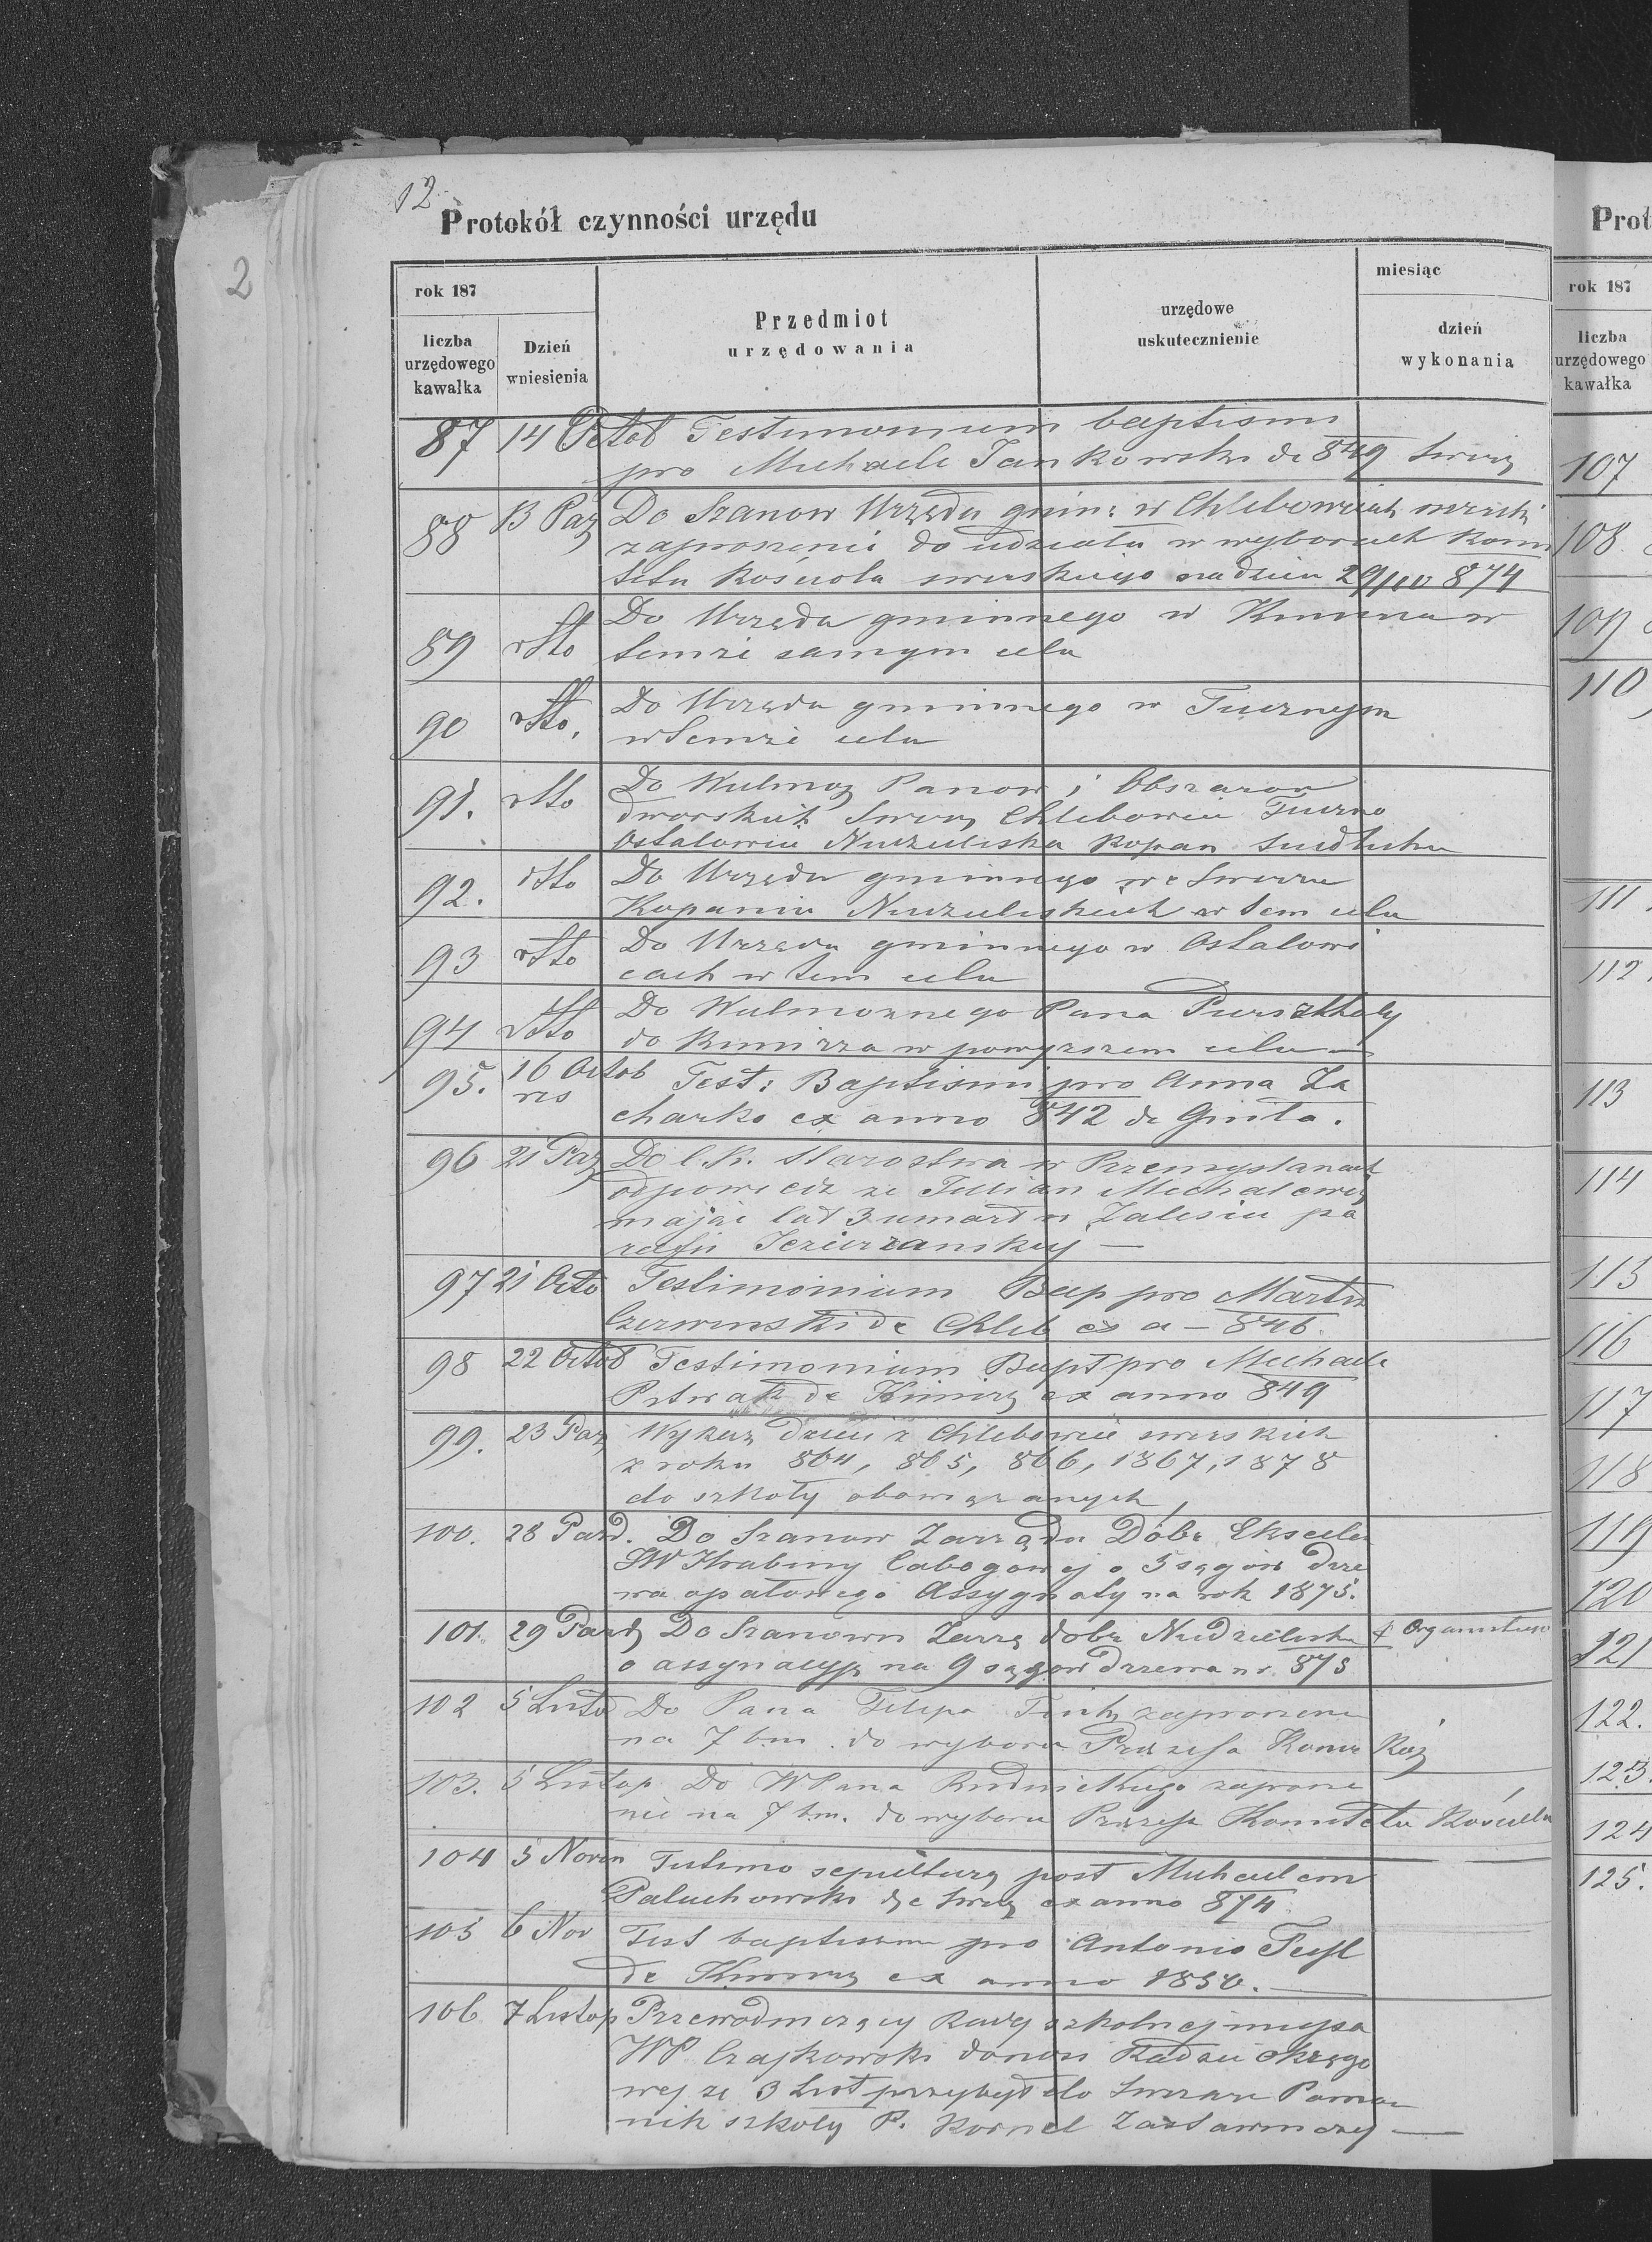 12
Protokół czynności urzędu
2
rok 187
liczba urzędowego kawałka
Dzień wniesienia
Przedmiot urzędowania
urzędowe uskutecznienie
miesiąc
dzień wykonania
87 14 Octob Testimonium baptismi
pro Michaele Jankowski de 849 Swirz
88 13 Paź Do Szanow Urzędu gmin: w Chlebowicach swirskich
zaproszenie do udziału w wyborach Komi
tetu Kościoła swirskiego na dzien 29/10 874
89 dtto Do Urzędu gminnego w Kimirzu w
temże samym celu
90 dtto. Do Urzędu gminnego w Tucznym
w temże celu
91. dtto Do Wielmoż Panow i Obszarow
dworskich Swirz Chlebowice Tuczno
Ostalowice Niedzieliska Kopan
92. dtto Do Urzędu gminnego we Swirzu
Kopaniu Niedzieliskach w tem celu
93 dtto Do Urzędu gminnego w Ostalowi
cach w tem celu
94 dtto Do Wielmożnego Pana
do Kimirza w powyższem celu
95. 16 Octob
res Test: Baptismi pro Anna Za
charko ex anno 842 de Ginta.
96 21 Paź Do C. K. Starostwa w Przemyslanach
odpowiedz ze Julian Michalewicz
majac lat 3 umarł w Zalesiu pa
rafii Jezierzanskiej —
97 21 Octo Testimoinium Bap pro Martin
Czerwinski de Chleb ex a – 846.
98 22 Octob Testimonium Bapt pro Michaele
de Kimirz ex anno 849
99. 23 Paz Wykaz dzieci z Chlebowic swirskich
z roku 864, 865, 866, 1867, 1878
do szkoły obowiązanych
100. 28 Pazd. Do Szanow Zarządu Dóbr Ekscelen
JW Hrabiny Cabogowej o 5 sągów drze
wa opałowego Assygnaty na rok 1875.
101. 29 Pazdz Do Szanown Zarzą dobr Niedzieliska & Organistow
o assynacyją na 9 sągow drzewa nr 875
102 5 Listo Do Pana Filipa zaproszenie
na 7 bm. do wyboru Prezesa Komi Koś
103. 5 Listop Do WPana Rudnickiego zaprosze
nie na 7 bm. do wyboru Prezesa Komitetu Kościeln
104 5 Novem Testimo sepulturę post Michaelem
Paluchowski de Swirz ex anno 874
105 6 Nov Test baptismi pro Antonio
de Kimirz ex anno 1850.
106 7 Listop Przewodniczący Rady szkolnej miejsco
WP Czajkowski donosi Radzie okręgo
wej ze 3 List przybył do Swirza Pomoc
nik szkoły P. Kornel Zastawniczy —
Prot
rok 187
liczba urzędowego kawałka
107
108
109
110
111
112
113
114
115
116
117
118
119
120
121
122.
123
124
125.